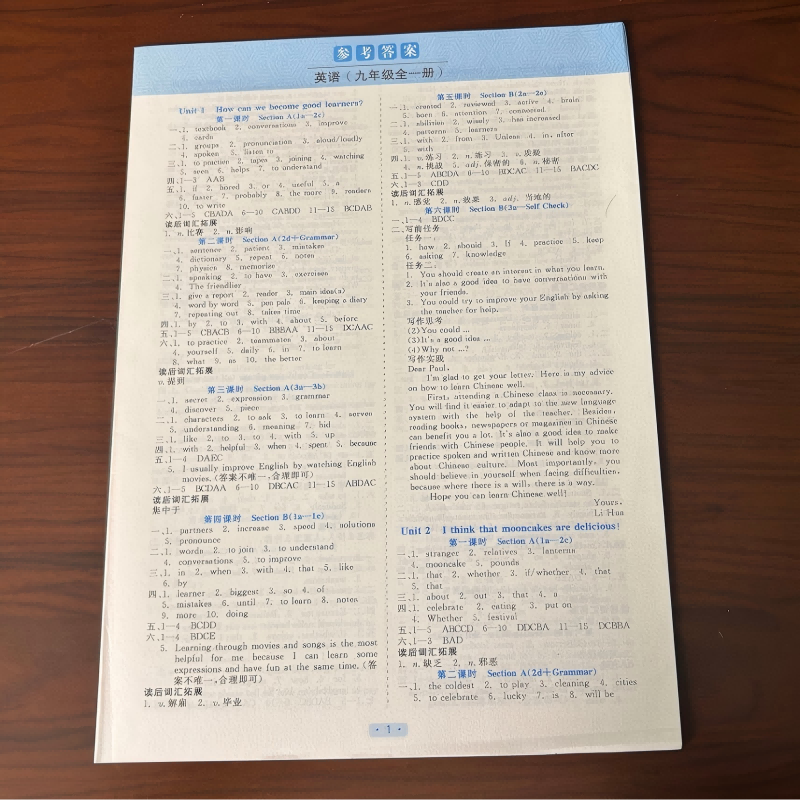 参考答案
英语(九年级全一册)
Unit 1 How can we become good learners?
第一课时 Section A(1a—2c)
一、1. textbook 2. conversations 3. improve
6. cards
二、1. groups 2. pronunciation 3. aloud/loudly
4. spoken 5. listen to
三、1. to practice 2. tapes 3. joining 4. watching
5. seen 6. helps 7. to understand
四、1—3 AAB
五、1. if 2. bored 3. or 4. useful 5. a
6. faster 7. probably 8. the more 9. readers
10. to write
六、1—5 CBADA 6—10 CABDD 11—15 BCDAB
读后词汇拓展
1. n.比赛 2. n.影响
第二课时 Section A(2d+Grammar)
一、1. sentence 2. patient 3. mistakes
4. dictionary 5. repeat 6. notes
7. physics 8. memorize
二、1. speaking 2. to have 3. exercises
4. The friendlier
三、1. give a report 2. reader 3. main idea(s)
4. word by word 5. pen pals 6. keeping a diary
7. repeating out 8. takes time
四、1. by 2. to 3. with 4. about 5. before
五、1—5 CBACB 6—10 BBBAA 11—15 DCAAC
六、1. to practice 2. teammates 3. about
4. yourself 5. daily 6. in 7. to learn
8. what 9. as 10. the better
读后词汇拓展
v.提到
第三课时 Section A(3a—3b)
一、1. secret 2. expression 3. grammar
4. discover 5. piece
二、1. characters 2. to ask 3. to learn 4. serves
5. understanding 6. meaning 7. hid
三、1. like 2. to 3. to 4. with 5. up
四、1. with 2. helpful 3. when 4. spent 5. because
五、1—4 DAEC
5. I usually improve English by watching English
movies.(答案不唯一,合理即可)
六、1—5 BCDAA 6—10 DBCAC 11—15 ABDAC
读后词汇拓展
集中于
第四课时 Section B(1a—1e)
一、1. partners 2. increase 3. speed 4. solutions
5. pronounce
二、1. words 2. to join 3. to understand
4. conversations 5. to improve
三、1. in 2. when 3. with 4. that 5. like
6. by
四、1. learner 2. biggest 3. so 4. of
5. mistakes 6. until 7. to learn 8. notes
9. more 10. doing
五、1—4 BCDD
六、1—4 BDCE
5. Learning through movies and songs is the most
helpful for me because I can learn some
expressions and have fun at the same time.(答
案不唯一,合理即可)
读后词汇拓展
1. v.解雇 2. v.毕业
第五课时 Section B(2a—2e)
一、1. created 2. reviewed 3. active 4. brain
5. born 6. attention 7. connected
二、1. abilities 2. wisely 3. has increased
4. patterns 5. learners
三、1. with 2. from 3. Unless 4. in, after
5. with
四、1. v.练习 2. n.练习 3. v.质疑
4. n.挑战 5. adj.保密的 6. n.秘密
五、1—5 ABCDA 6—10 BDCAC 11—15 BACDC
六、1—3 CDD
读后词汇拓展
1. n.感觉 2. n.效果 3. adj.当地的
第六课时 Section B(3a—Self Check)
一、1—4 BDCC
二、写前任务
任务一:
1. how 2. should 3. If 4. practice 5. keep
6. asking 7. knowledge
任务二:
1. You should create an interest in what you learn.
2. It's also a good idea to have conversations with
your friends.
3. You could try to improve your English by asking
the teacher for help.
写作思考
(2)You could ...
(3)It's a good idea ...
(4)Why not ...?
写作实践
Dear Paul,
I'm glad to get your letter. Here is my advice
on how to learn Chinese well.
First, attending a Chinese class is necessary.
You will find it easier to adapt to the new language
system with the help of the teacher. Besides,
reading books, newspapers or magazines in Chinese
can benefit you a lot. It's also a good idea to make
friends with Chinese people. It will help you to
practice spoken and written Chinese and know more
about Chinese culture. Most importantly, you
should believe in yourself when facing difficulties,
because where there is a will, there is a way.
Hope you can learn Chinese well!
Yours,
Li Hua
Unit 2 I think that mooncakes are delicious!
第一课时 Section A(1a—2c)
一、1. stranger 2. relatives 3. lanterns
4. mooncake 5. pounds
二、1. that 2. whether 3. if/whether 4. that
5. that
三、1. about 2. out 3. that 4. a
四、1. celebrate 2. eating 3. put on
4. Whether 5. festival
五、1—5 ABCCD 6—10 DDCBA 11—15 DCBBA
六、1—3 BAD
读后词汇拓展
1. n.缺乏 2. n.邪恶
第二课时 Section A(2d+Grammar)
一、1. the coldest 2. to play 3. cleaning 4. cities
5. to celebrate 6. lucky 7. is 8. will be
· 1 ·